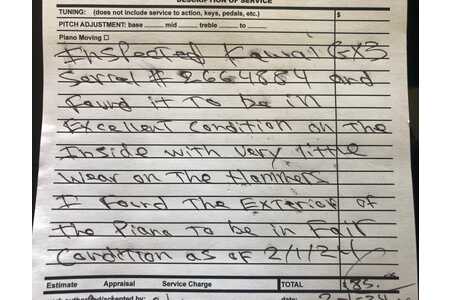 DESCRIPTION OF SERVICE
TUNING: (does not include service to action, keys, pedals, etc.) $
PITCH ADJUSTMENT: base mid treble to
Piano Moving
Inspected Kawai GX3
Serial # 2664884 and
found it to be in
Excellent Condition on the
Inside with very little
Wear on The Hammers
I found The Exterior of
the Piano To be in Fair
Condition as of 2/1/24
Estimate Appraisal Service Charge TOTAL $85.
date: